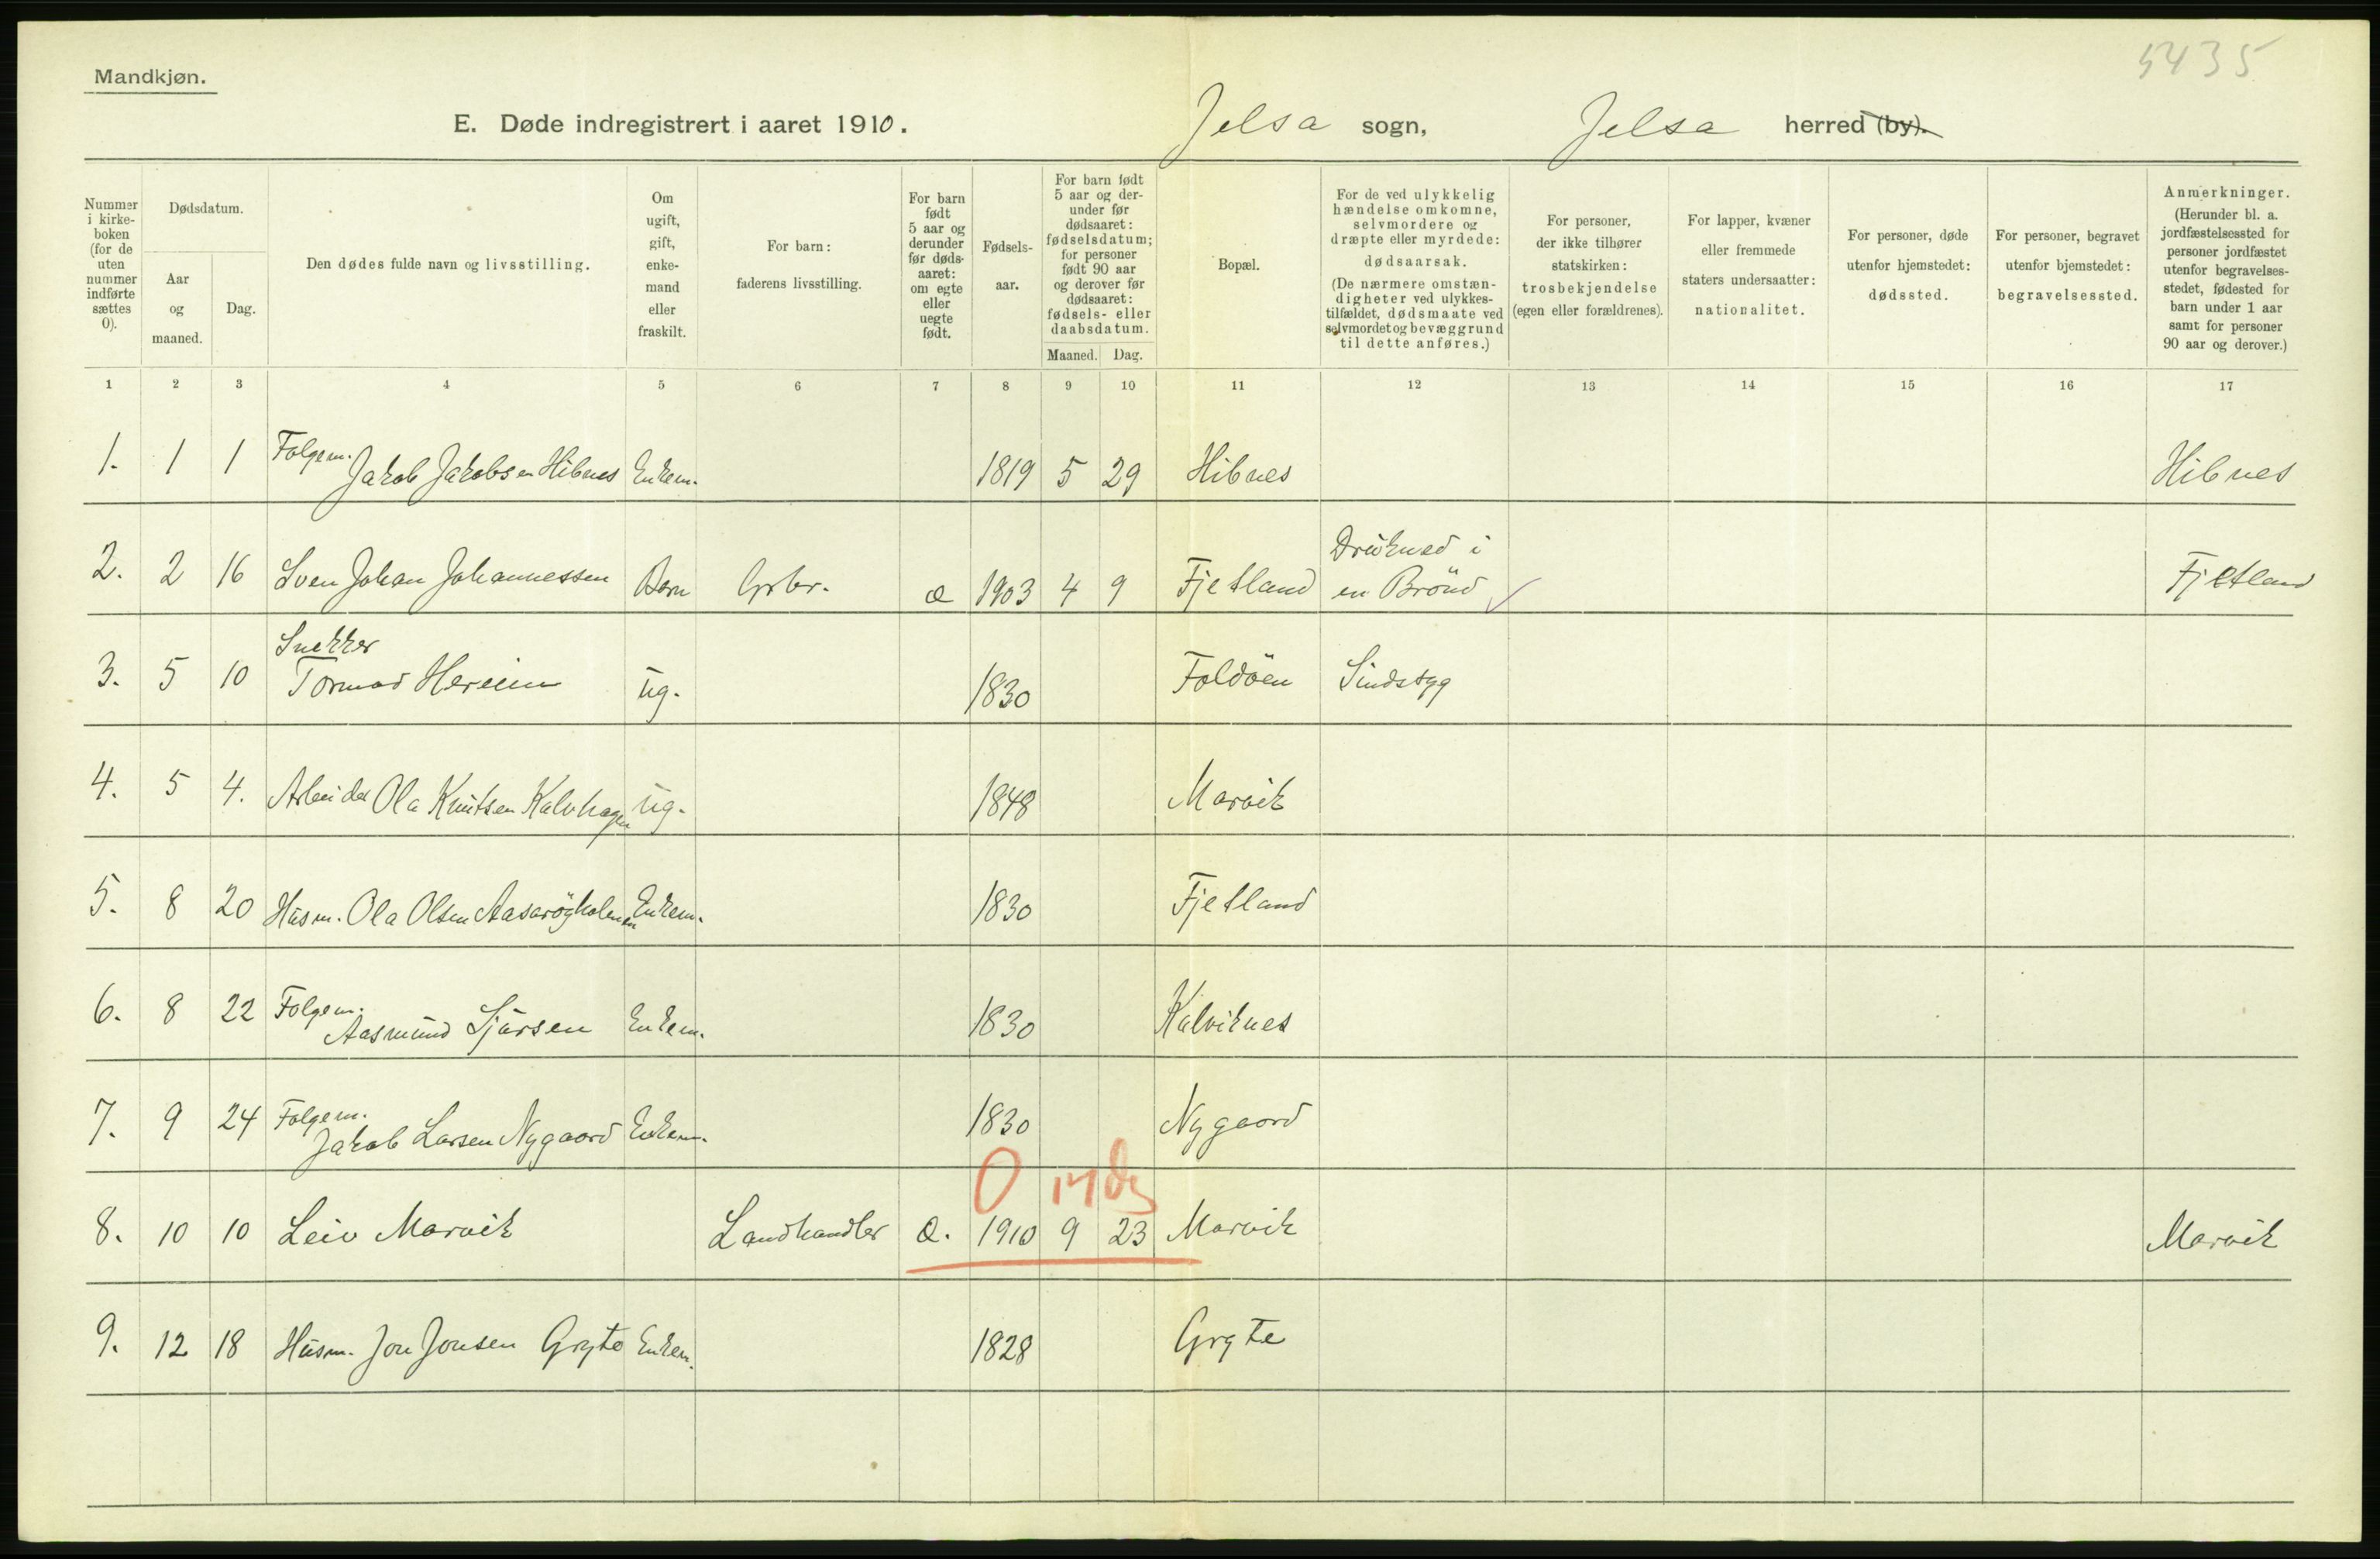 5435
Mandkjøn.
E. Døde indregistrert i aaret 1910. Jelsa sogn, Jelsa herred (by).
Nummer i kirke-boken (for de uten nummer indførte sættes 0).
Dødsdatum.
Aar og maaned.
Dag.
Den dødes fulde navn og livsstilling.
Om ugift, gift, enke-mand eller fraskilt.
For barn: faderens livsstilling.
For barn født 5 aar og derunder før døds-aaret: om egte eller uegte født.
Fødsels-aar.
For barn født 5 aar og der-under før dødsaaret: fødselsdatum; for personer født 90 aar og derover før dødsaaret: fødsels- eller daabsdatum.
Maaned. Dag.
Bopæl.
For de ved ulykkelig hændelse omkomne, selvmordere og dræpte eller myrdede: dødsaarsak.
(De nærmere omstæn-digheter ved ulykkes-tilfældet, dødsmaate ved selvmordet og bevæggrund til dette anføres.)
For personer, der ikke tilhører statskirken: trosbekjendelse (egen eller forældrenes).
For lapper, kvæner eller fremmede staters undersaatter: nationalitet.
For personer, døde utenfor hjemstedet: dødssted.
For personer, begravet utenfor hjemstedet: begravelsessted.
Anmerkninger.
(Herunder bl. a. jordfæstelsessted for personer jordfæstet utenfor begravelses-stedet, fødested for barn under 1 aar samt for personer 90 aar og derover.)
1 2 3 4 5 6 7 8 9 10 11 12 13 14 15 16 17
1. 1 1 Folgem. Jakob Jakobsen Hibnes Enkem. 1819 5 29 Hibnes Hibnes
2. 2 16 Sven Johan Johannessen Barn Grbr. æ 1903 4 9 Fjetland Drukned i en Brönd Fjetland
3. 5 10 Snekker Tormod Hereim ug. 1830 Foldöen Sindssyg
4. 5 4. Arbeider Ola Knutsen Kalvhagen ug. 1848 Marvik
5. 8 20 Husm. Ola Olsen Enkem. 1830 Fjetland
6. 8 22 Folgem. Aasmund Sjursen Enkem. 1830 Kalviknes
7. 9 24 Folgem. Jakob Larsen Nygaard Enkem. 1830 Nygaard
0 17 d
8. 10 10 Leiv Marvik Landhandler æ. 1910 9 23 Marvik Marvik
9. 12 18 Husm. Jon Jonsen Gryte Enkem. 1828 Gryte